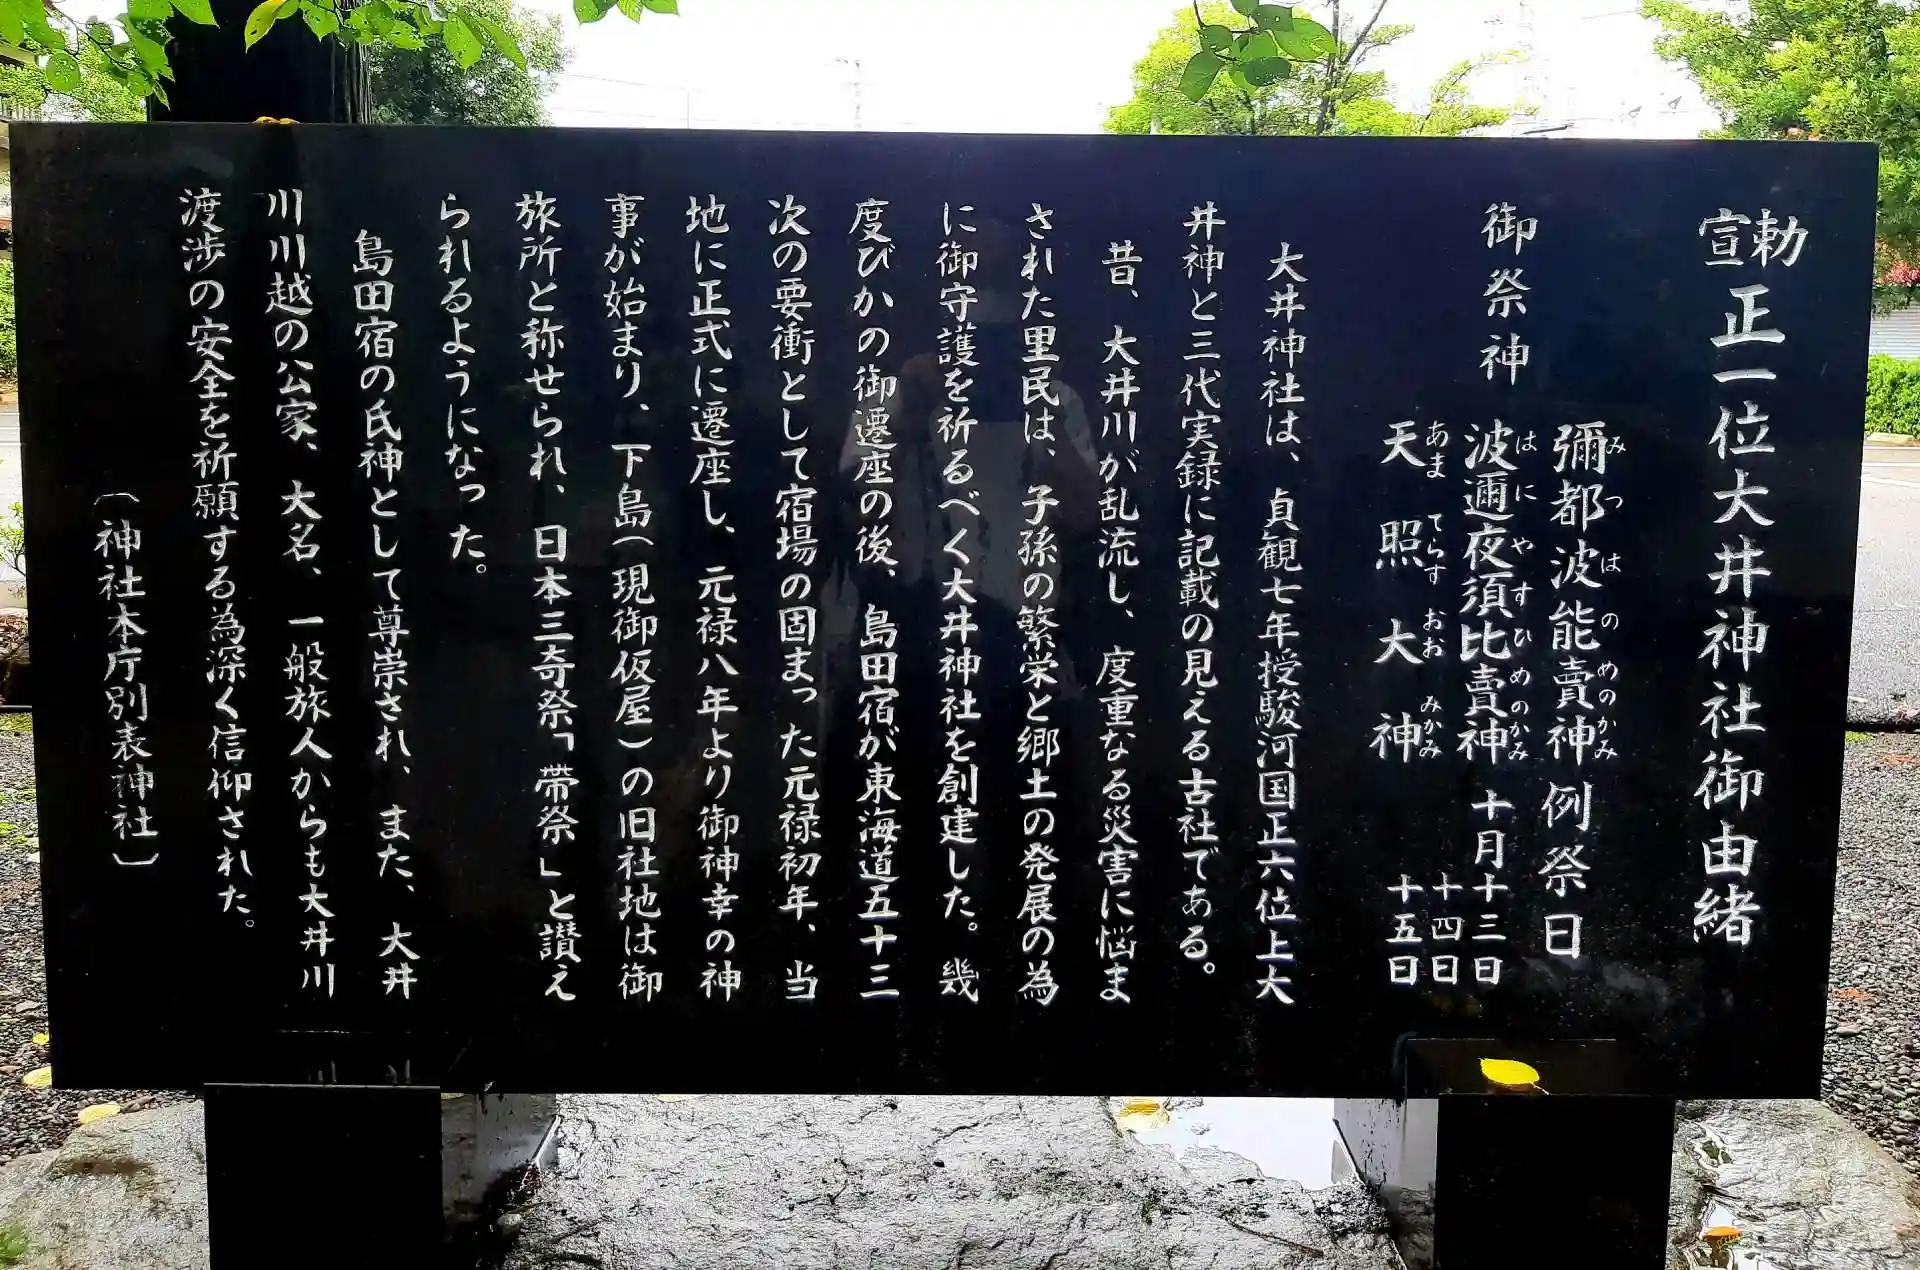 勅宣 正一位大井神社御由緒
御祭神
彌都波能賣神 例祭日
みつはのめのかみ
波邇夜須比賣神 十月十三日
はにやすひめのかみ
十四日
天照大神 十五日
あまてらすおおみかみ
大井神社は、貞観七年授駿河国正六位上大
井神と三代実録に記載の見える古社である。
昔、大井川が乱流し、度重なる災害に悩ま
された里民は、子孫の繁栄と郷土の発展の為
に御守護を祈るべく大井神社を創建した。幾
度びかの御遷座の後、島田宿が東海道五十三
次の要衝として宿場の固まった元禄初年、当
地に正式に遷座し、元禄八年より御神幸の神
事が始まり、下島(現御仮屋)の旧社地は御
旅所と称せられ、日本三奇祭「帯祭」と讃え
られるようになった。
島田宿の氏神として尊崇され、また、大井
川川越の公家、大名、一般旅人からも大井川
渡渉の安全を祈願する為深く信仰された。
(神社本庁別表神社)